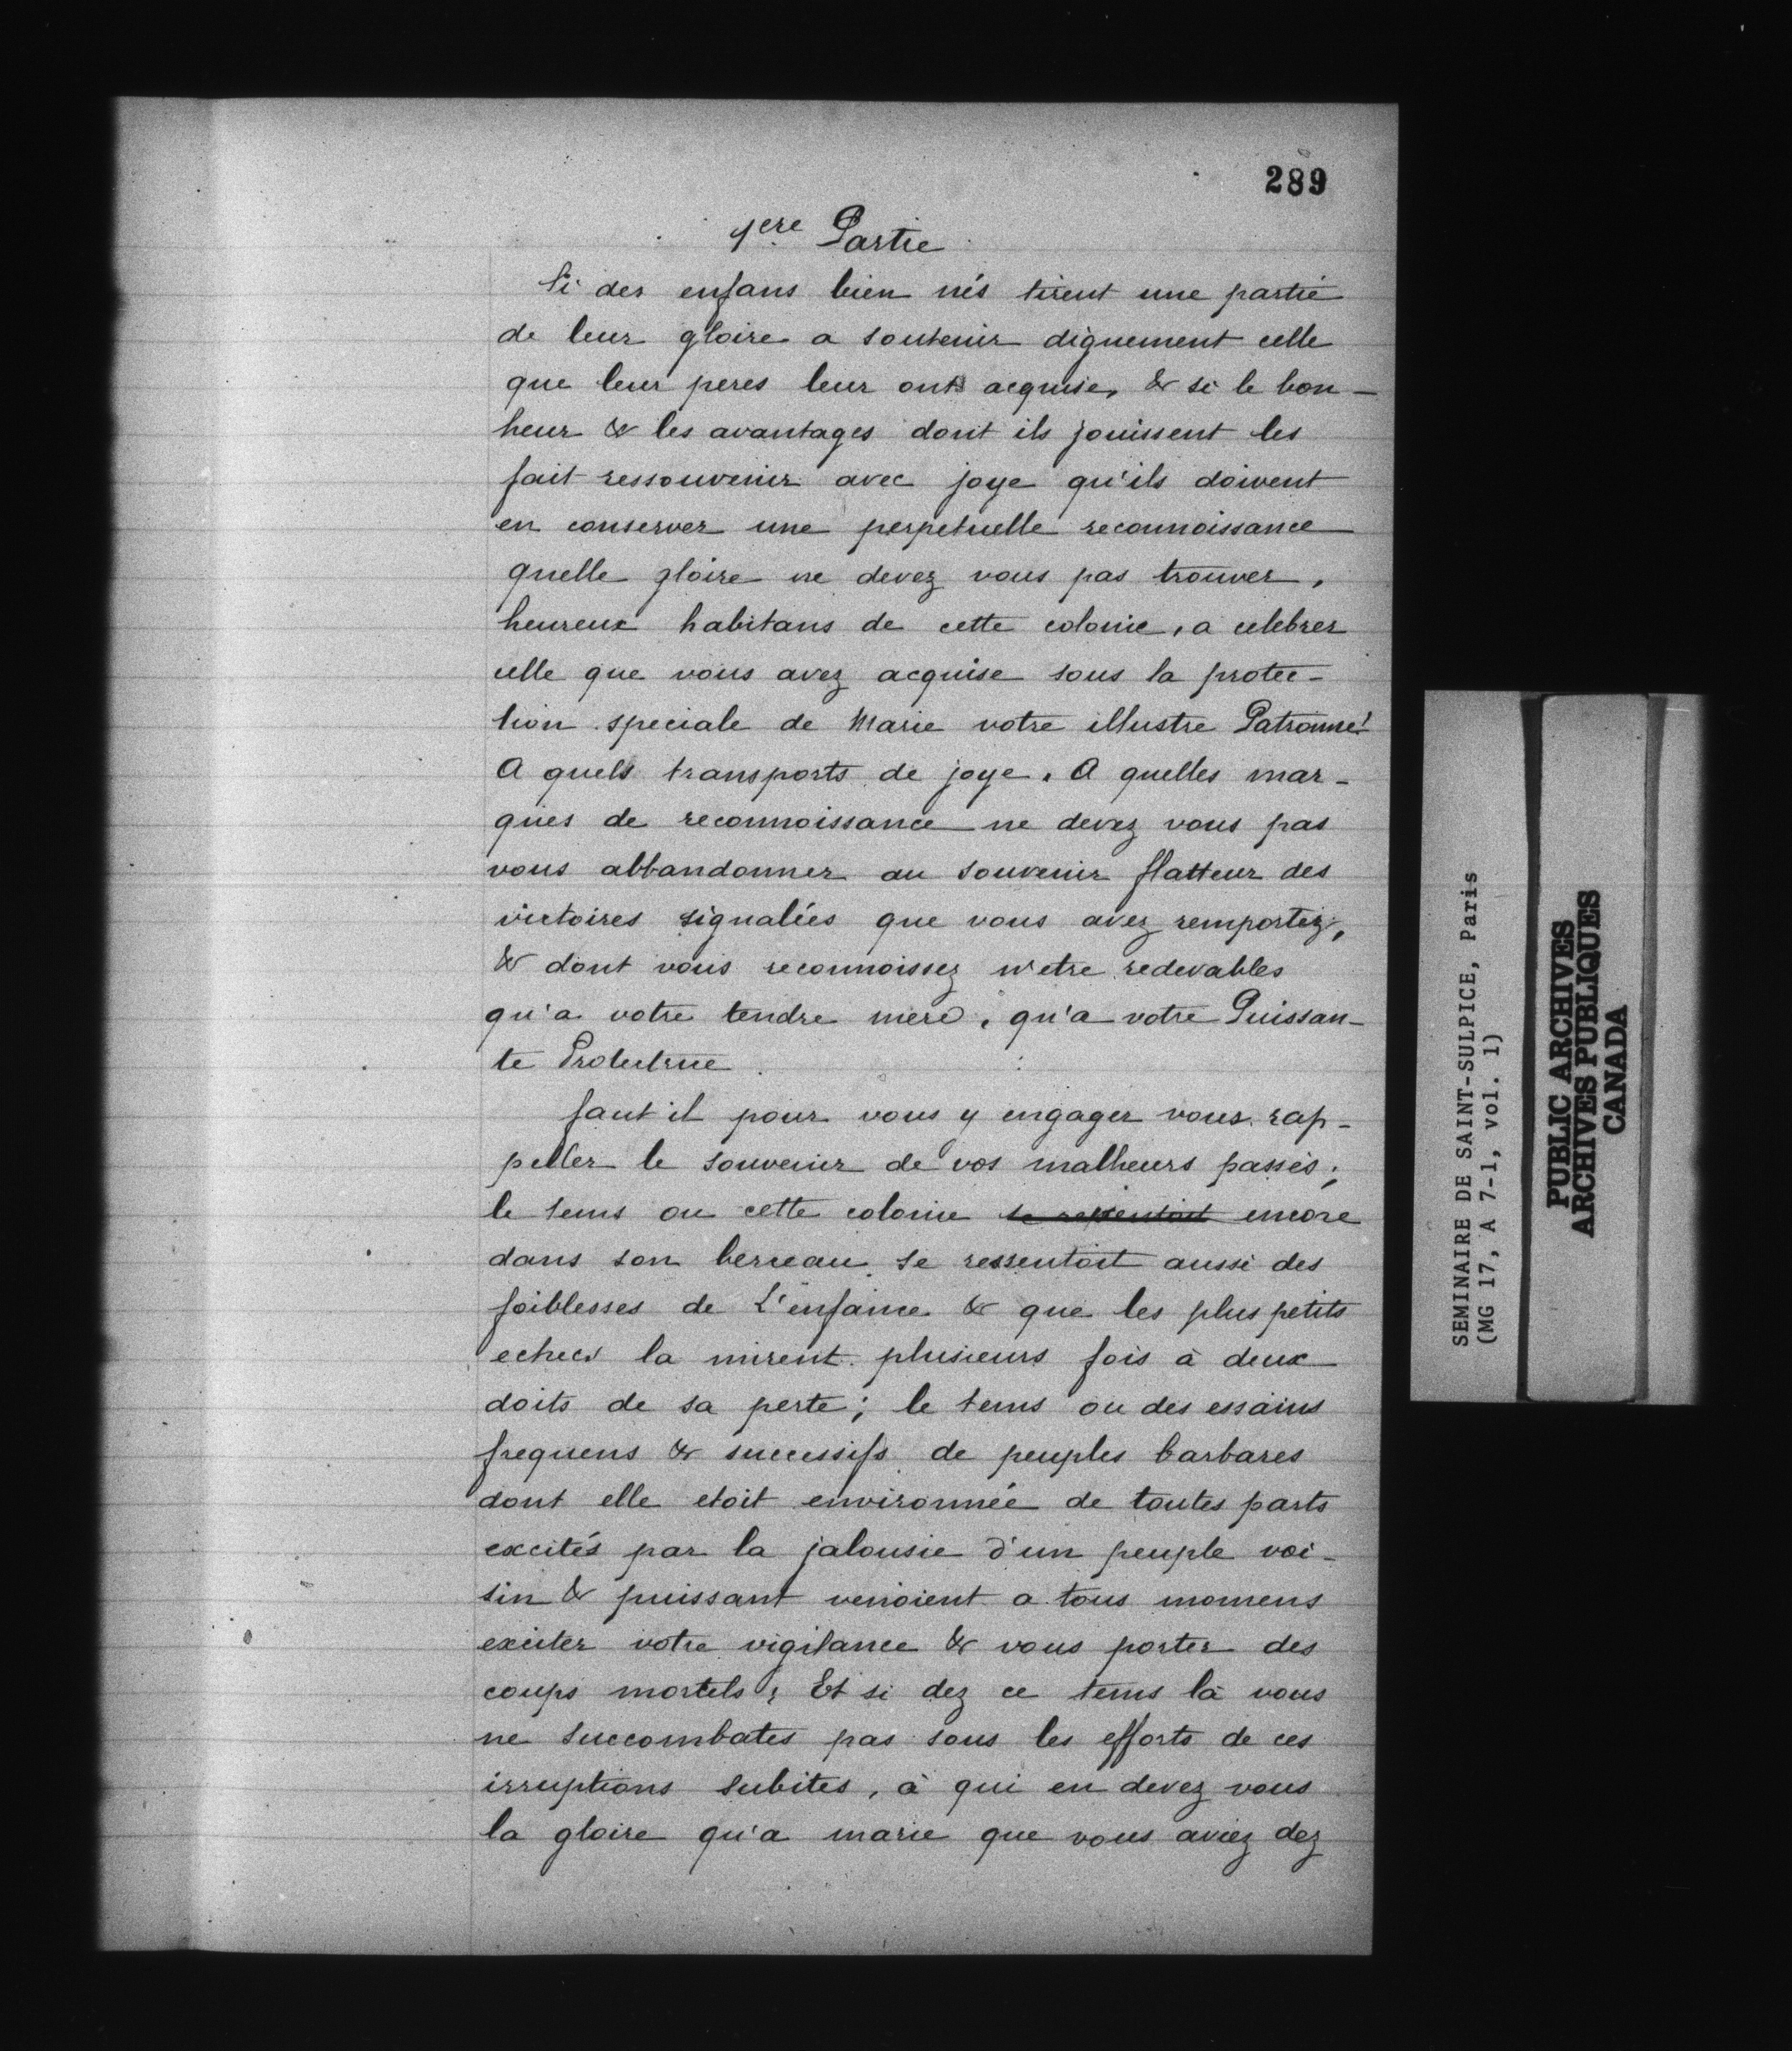 289
1ere Partie
Si des enfans bien nés tirent une partie
de leur gloire a soutenir dignement celle
que leur peres leur ont acquise, & si le bon-
heur & les avantages dont ils jouissent les
fait ressouvenir avec joye qu'ils doivent
en conserver une perpetuelle reconnoissance
quelle gloire ne devez vous pas trouver,
heureux habitans de cette colonie, a celebrer
celle que vous avez acquise sous la protec-
tion speciale de Marie votre illustre Patronne!
A quels transports de joye. A quelles mar-
ques de reconnoissance ne devez vous pas
vous abbandonner au souvenir flatteur des
victoires signalées que vous avez remportez,
& dont vous reconnoissez n'etre redevables
qu'a votre tendre mere, qu'a votre Puissan-
te Protectrice.
faut il pour vous y engager vous rap-
peller le souvenir de vos malheurs passés;
le tems ou cette colonie se ressentoit encore
dans son berceau se ressentoit aussi des
foiblesses de L'enfance & que les plus petits
echecs la mirent plusieurs fois à deux
doits de sa perte; le tems ou des essains
frequens & successifs de peuples barbares
dont elle etoit environnée de toutes parts
excités par la jalousie d'un peuple voi-
sin & puissant venoient a tous momens
exciter votre vigilance & vous porter des
coups mortels; Et si dez ce tems là vous
ne succombates pas sous les efforts de ces
irruptions subites, à qui en devez vous
la gloire qu'a marie que vous aviez dez
SEMINAIRE DE SAINT-SULPICE, Paris
(MG 17, A 7-1, vol. 1)
PUBLIC ARCHIVES
ARCHIVES PUBLIQUES
CANADA